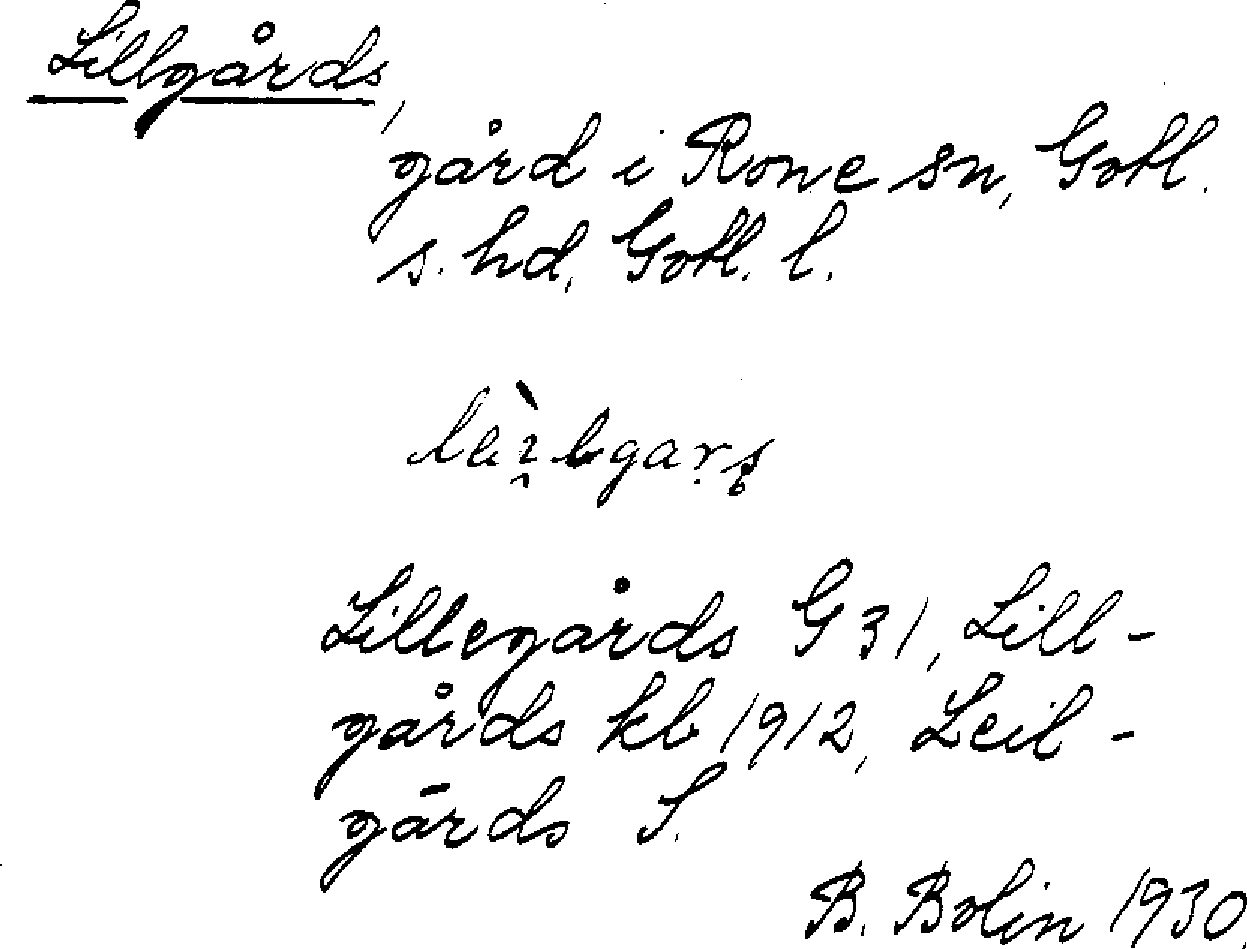 Lillgårds,
gård i Rone sn, Gotl.
s. hd, Gotl. l.
Lillegårds G 31, Lill-
gårds kb 1912, Leil-
gārds S.
B. Bolin 1930.